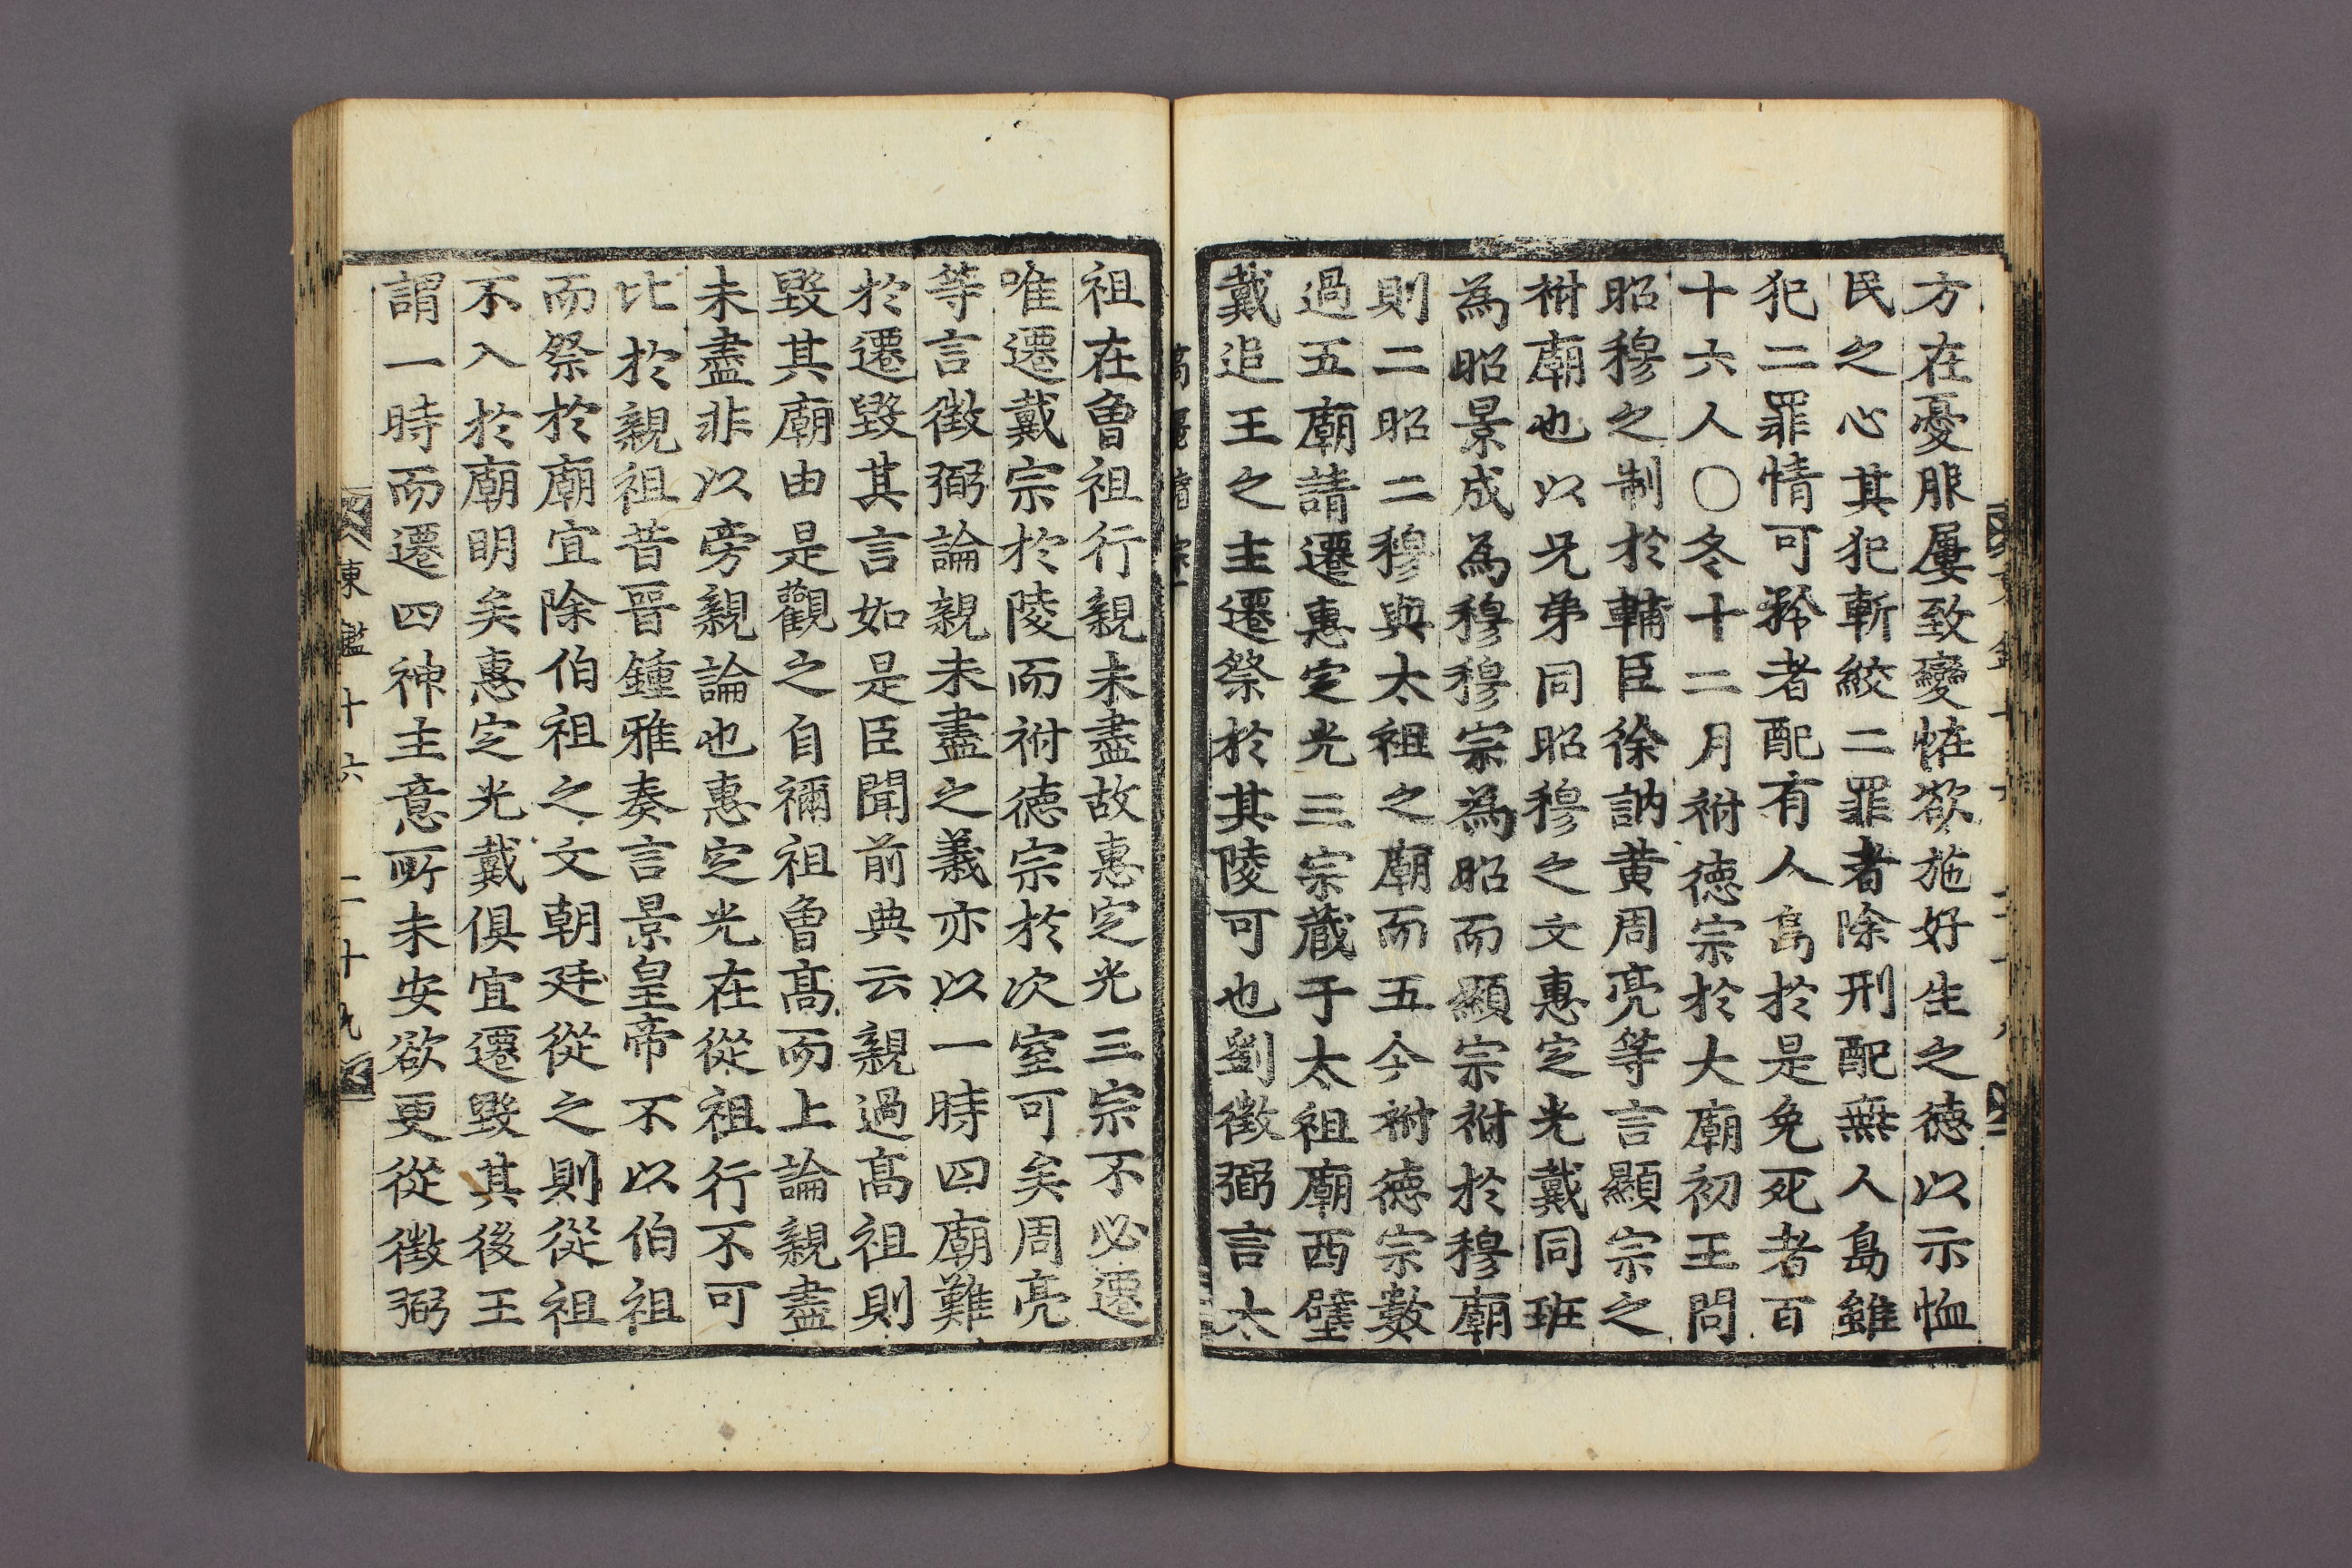 方在憂服屢致變恠欲施好生之德以示恤
民之心其犯斬絞二罪者除刑配無人島雖
犯二罪情可矜者配有人島於是免死者百
十六人○冬十二月祔德宗於大廟初王問
昭穆之制於輔臣徐訥黃周亮等言顯宗之
祔廟也以兄弟同昭穆之文惠定光戴同班
為昭景成為穆穆宗為昭而顯宗祔於穆廟
則二昭二穆與太祖之廟而五今祔德宗數
過五廟請遷惠定光三宗藏于太祖廟西壁
戴追王之主遷祭於其陵可也劉徵弼言太
高麗靖宗
祖在魯祖行親未盡故惠定光三宗不必遷
唯遷戴宗於陵而祔德宗於次室可矣周亮
等言徵弼論親未盡之義亦以一時四廟難
於遷毀其言如是臣聞前典云親過高祖則
毀其廟由是觀之自禰祖魯高而上論親盡
未盡非以旁親論也惠定光在從祖行不可
比於親祖昔晉鍾雅奏言景皇帝不以伯祖
而祭於廟宜除伯祖之文朝廷從之則從祖
不入於廟明矣惠定光戴俱宜遷毀其後王
謂一時而遷四神主意所未安欲更從徵弼
東鑑十六 二十九